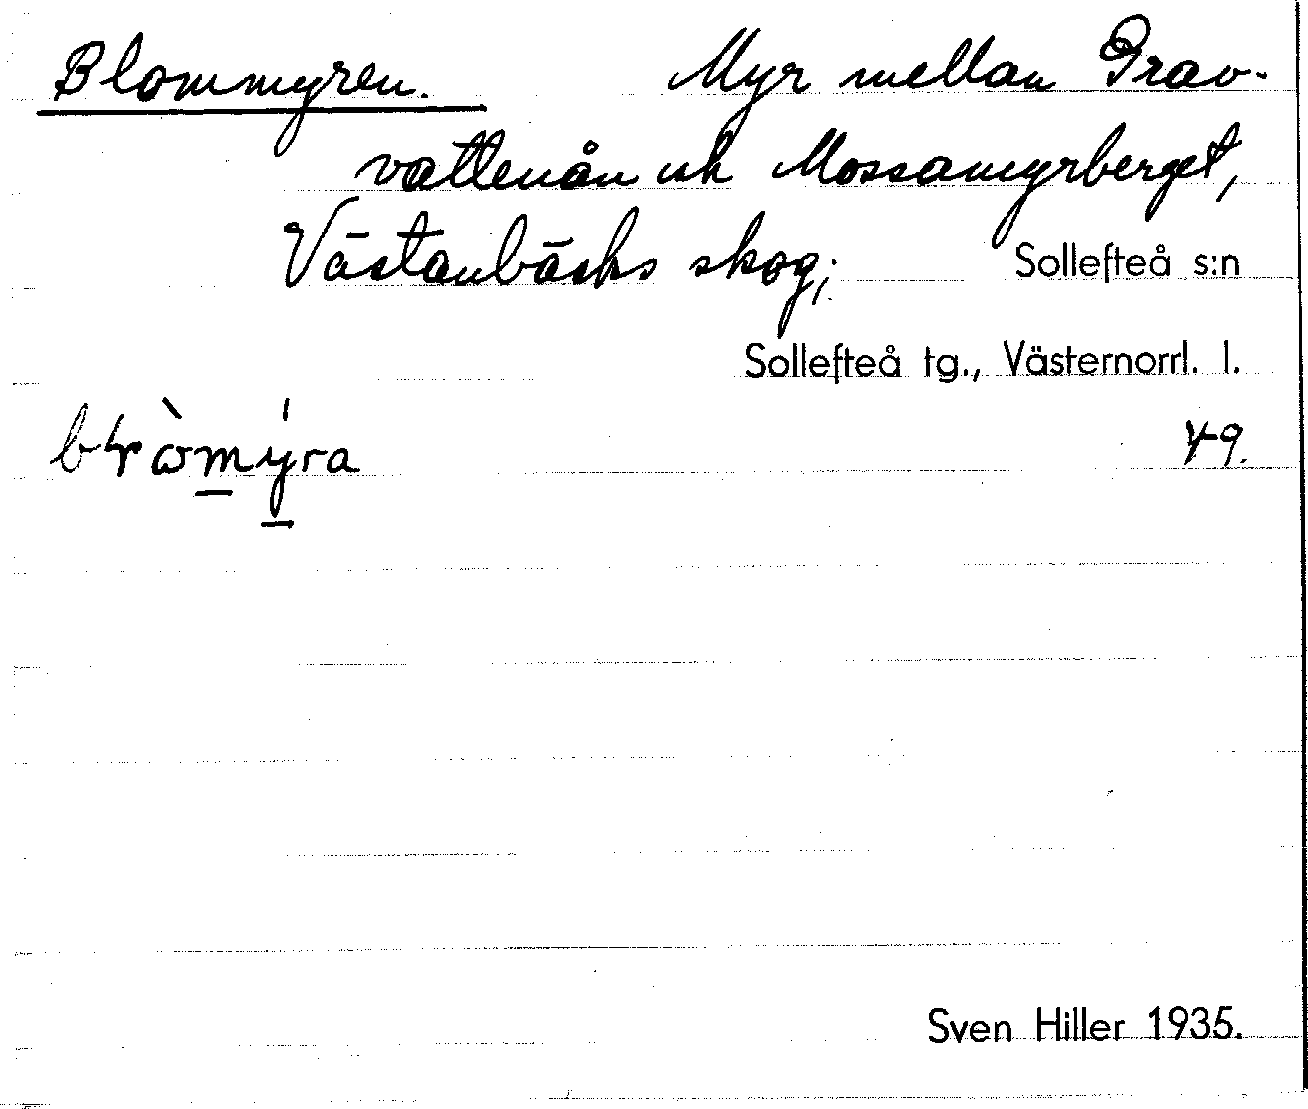 Blommyren. Myr mellan Grav-
vattenån och Mossamyrberget,
Västanbäcks skog; Sollefteå s:n
Sollefteå tg., Västernorrl. l.
49.
Sven Hiller 1935.